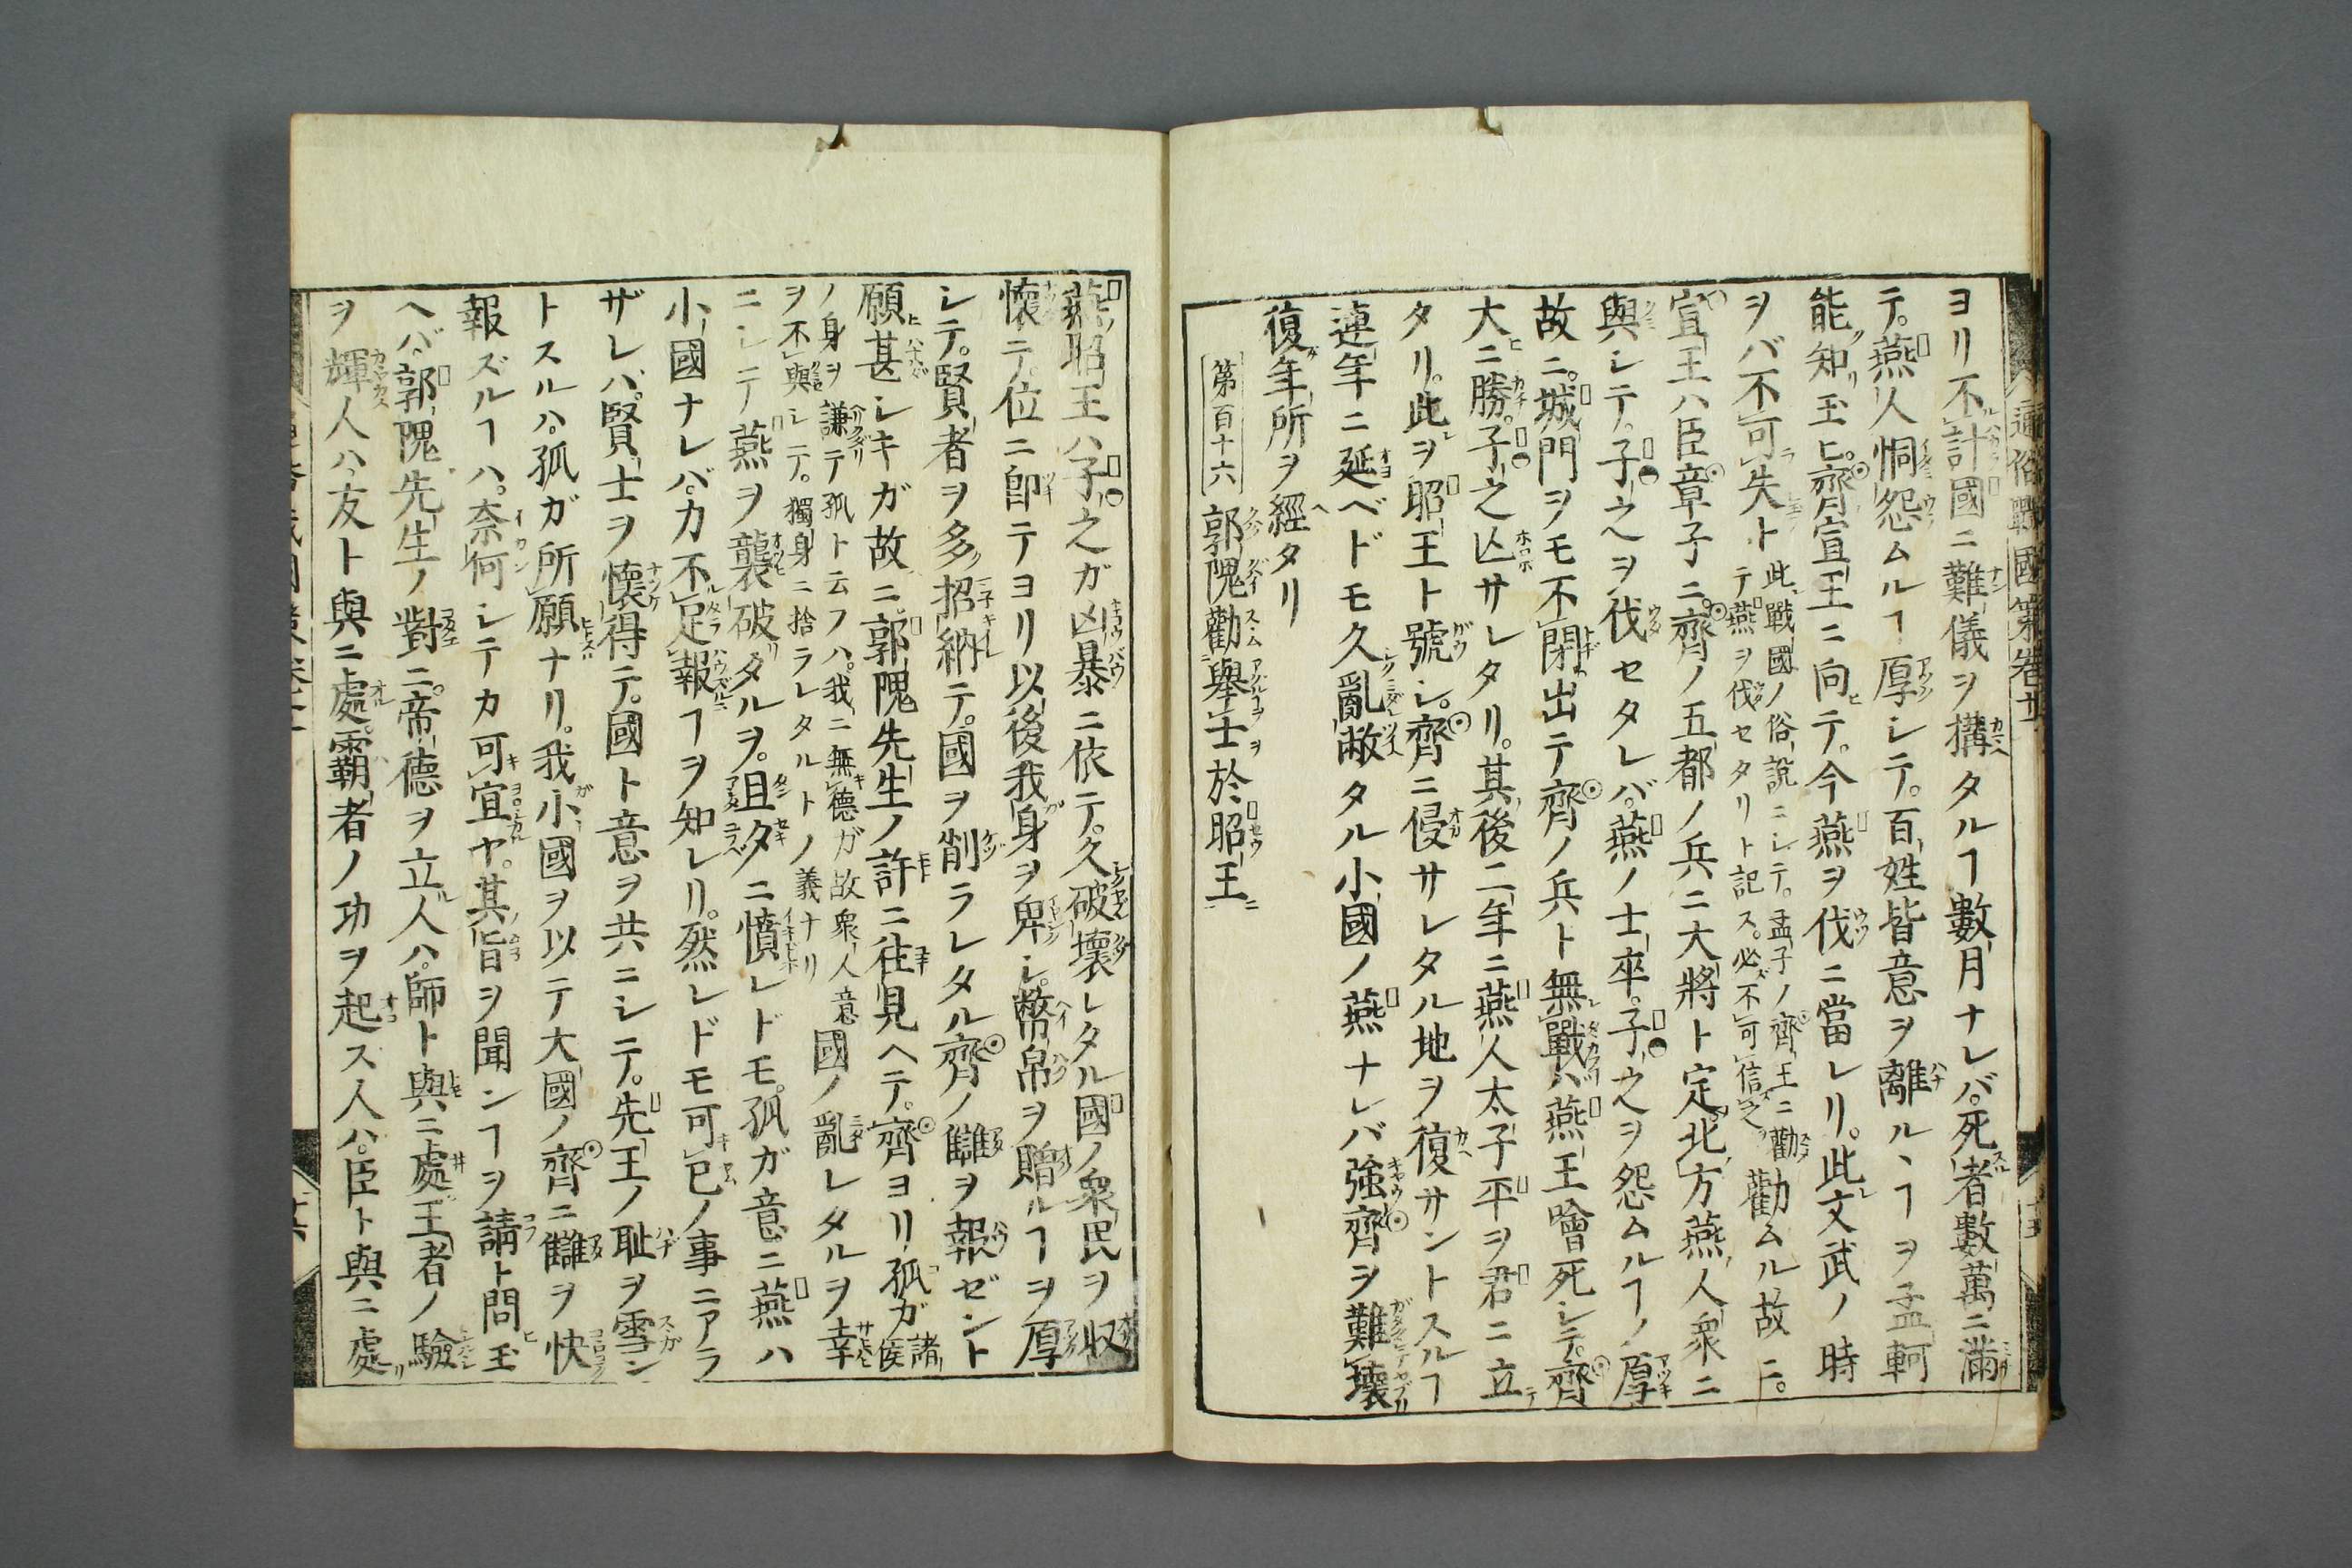 通俗戰國策卷廿
ヨリ不計國ニ難儀ヲ構タルヿ數月ナレバ。死者數萬ニ滿
テ。燕人恫怨ムルヿ厚シテ。百姓皆意ヲ離ルヽヿヲ孟軻
能知玉ヒ。齊宣王ニ向テ。今燕ヲ伐ニ當レリ。此文武ノ時
ヲバ不可失ト此戰國ノ俗說ニシテ。孟子ノ齊王ニ勸テ燕ヲ伐セタリト記ス。必不可信之勸ムル故ニ。
宣王ハ臣章子ニ。齊ノ五都ノ兵ニ大將ト定。北方燕人衆ニ
與シテ。子之ヲ伐セタレバ。燕ノ士卒。子之ヲ怨ムルヿノ厚
故ニ。城門ヲモ不閉出テ齊ノ兵ト無戰ハ燕王噲死シテ。齊
大ニ勝。子之亾サレタリ。其後二年ニ燕人太子平ヲ君ニ立
タリ。此ヲ昭王ト號シ。齊ニ侵サレタル地ヲ復サントスルヿ
連年ニ延ベドモ久亂敝タル小國ノ燕ナレバ強齊ヲ難壞
復年所ヲ經タリ
第百十六 郭隗勸舉士於昭王
燕昭王ハ子之ガ凶暴ニ依テ。久破壞レタル國ノ衆民ヲ収
懷テ。位ニ卽テヨリ以後我身ヲ卑シ。幣帛ヲ贈ルヿヲ厚
シテ。賢者ヲ多招納テ。國ヲ削ラレタル齊ノ讎ヲ報ゼント
願甚シキガ故ニ。郭隗先生ノ許ニ往見ヘテ。齊ヨリ孤ガ諸侯
ノ身ヲ謙テ孤ト云フハ。我ニ無德ガ故衆人意ヲ不與シテ。獨身ニ捨ラレタルトノ義ナリ國ノ亂レタルヲ幸
ニシテ燕ヲ襲破タルヲ。且夕ニ憤レドモ。孤ガ意ニ燕ハ
小國ナレバ。力不足報ヿヲ知レリ。然レドモ可已ノ事ニアラ
ザレバ。賢士ヲ懷得テ。國ト意ヲ共ニシテ。先王ノ耻ヲ雪ン
トスルハ。孤ガ所願ナリ。我小國ヲ以テ大國ノ齊ニ讎ヲ快
報ズルヿハ。奈何シテカ可宜ヤ。其旨ヲ聞ンヿヲ請ト問玉
ヘバ。郭隗先生ノ對ニ。帝德ヲ立人ハ。師ト與ニ處。王者ノ驗
ヲ輝人ハ友ト與ニ處。霸者ノ功ヲ起ス人ハ。臣ト與ニ處